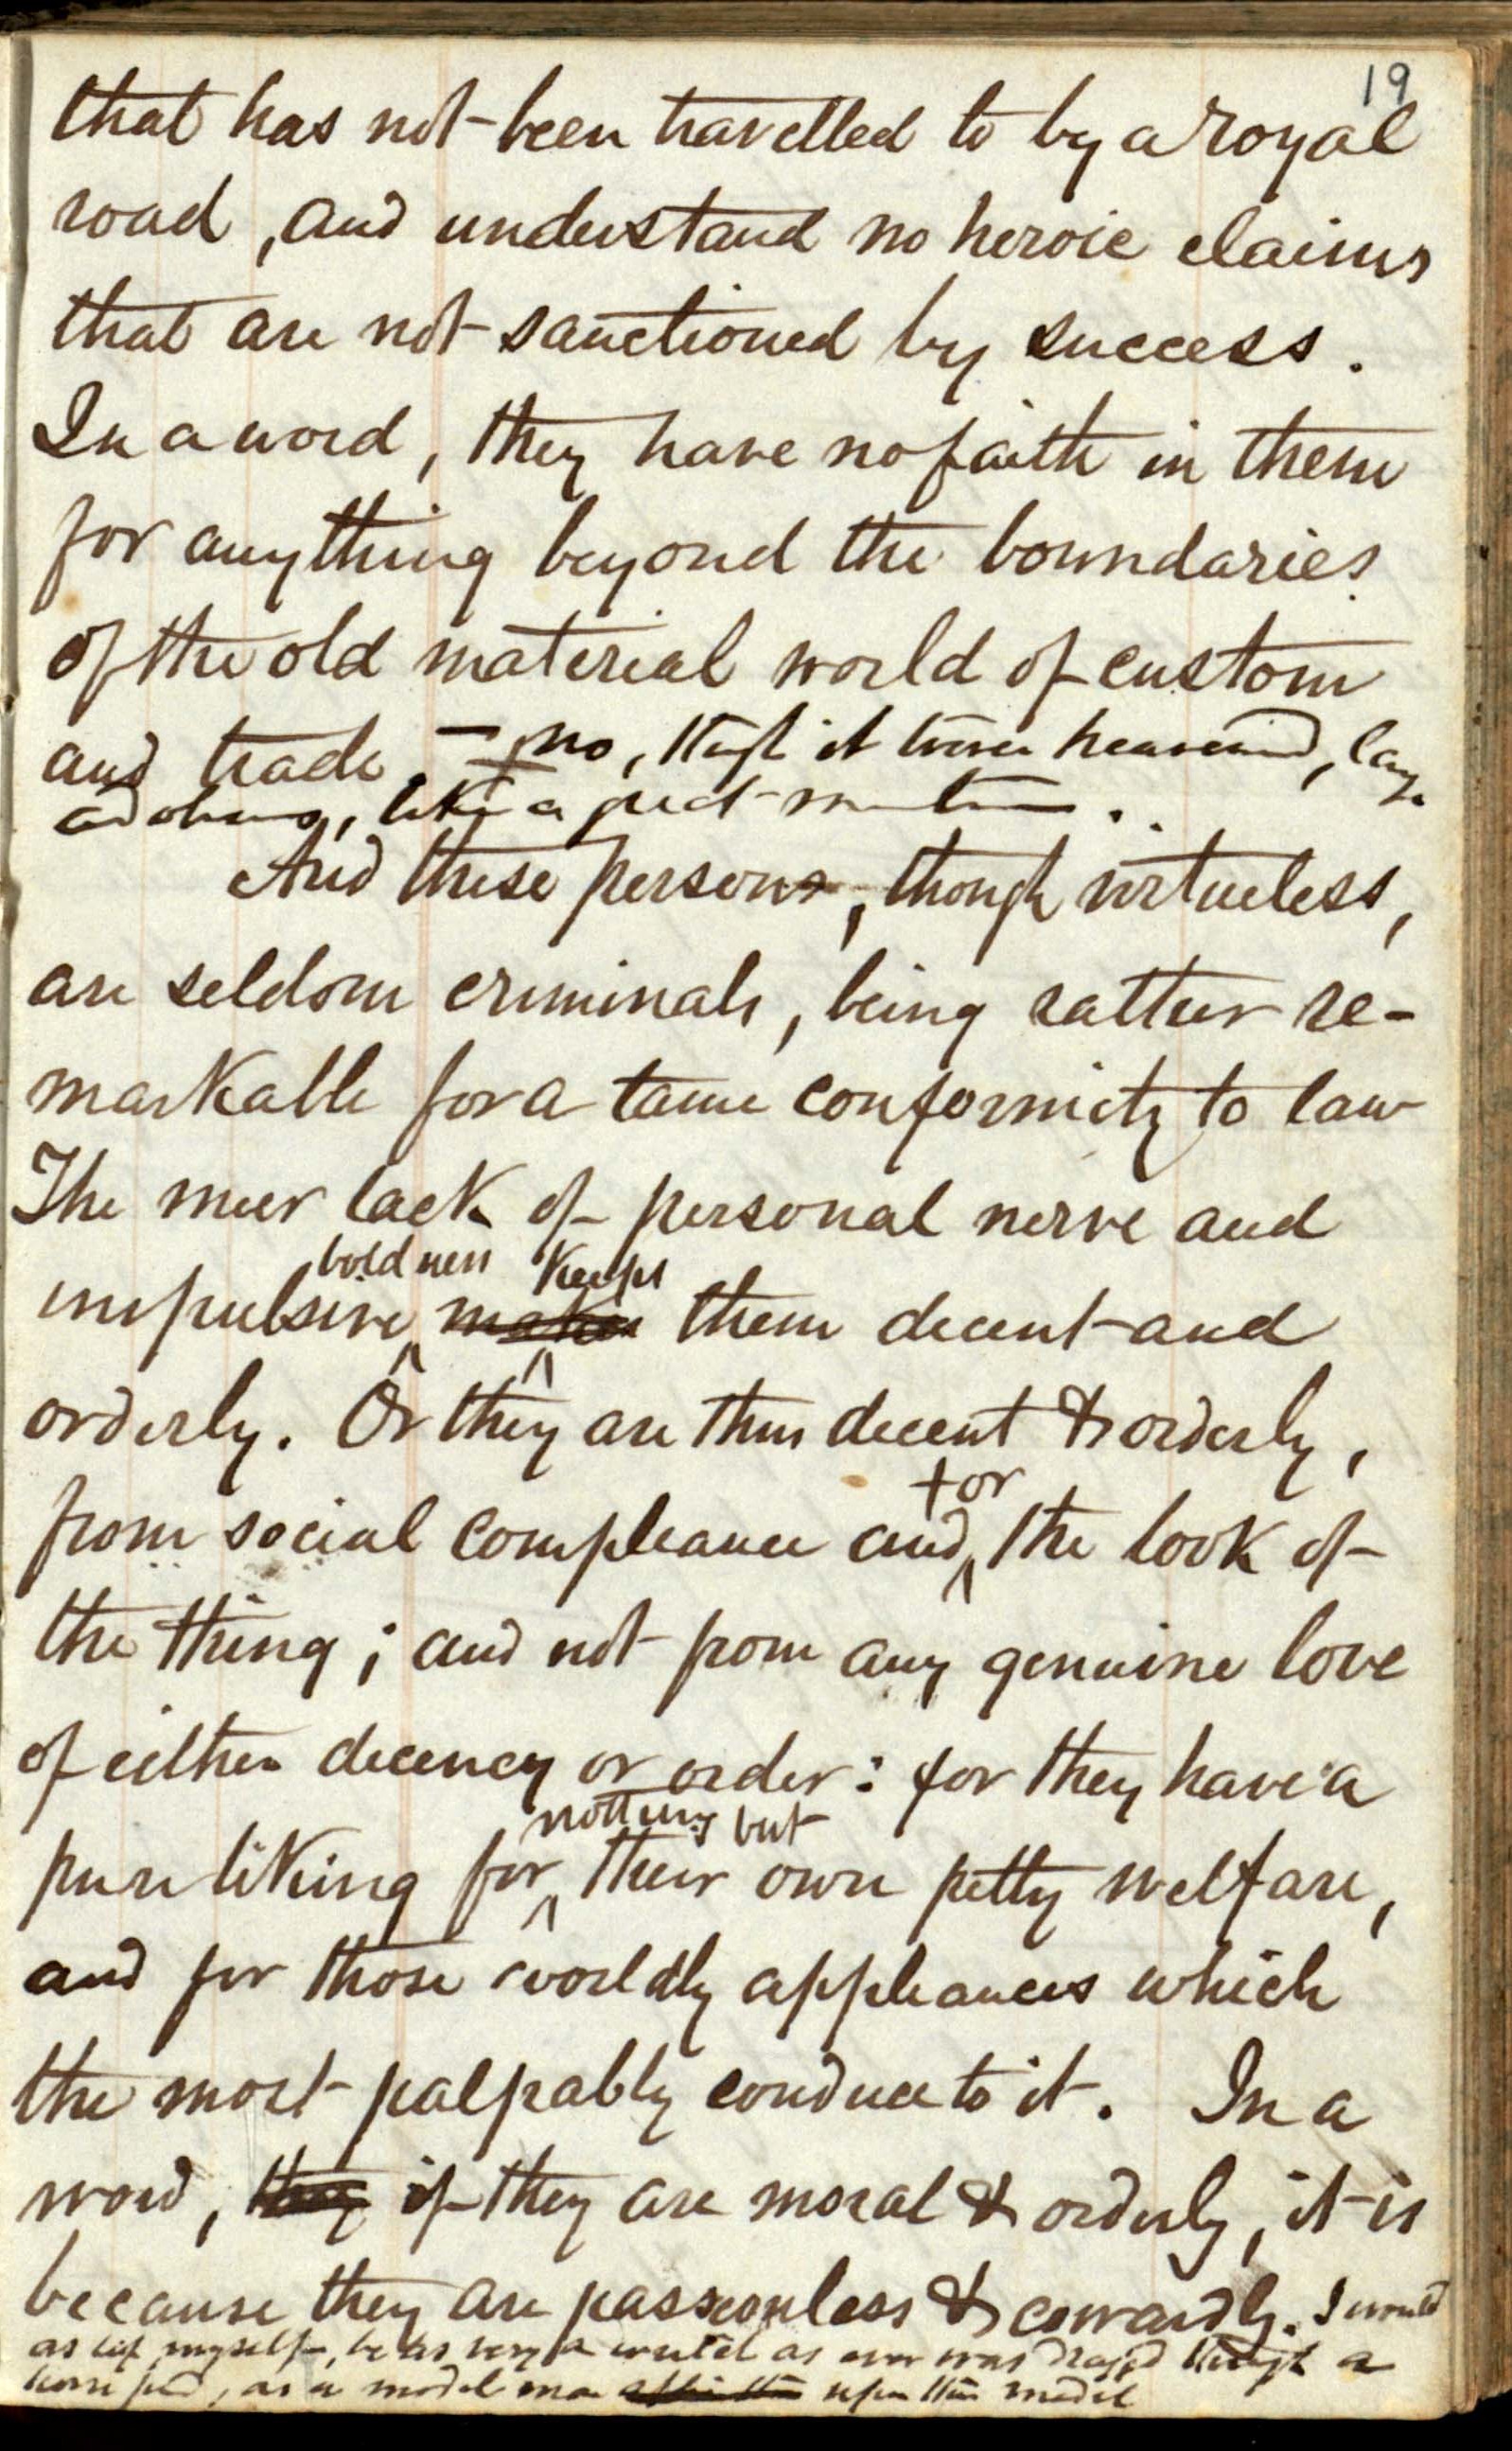 19
that has not been travelled to by a royal
road, and understand no heroic claims
that are not sanctioned by success.
In a word, they have no faith in them
for anything beyond the boundaries
of the old material world of custom
and trade, — no, though it were heaven, large
and obvious, like a
And these persons, though virtueless,
are seldom criminals, being rather re-
markable for a tame conformity to law
The meer lack of personal nerve and
boldness keeps
impulsive makes them decent and
orderly. Or they are thus decent & orderly,
for
from social compliance and the look of
the thing; and not from any genuine love
of either decency or order: for they have a
nothing but
pure liking for their own petty welfare,
and for those worldly appliances which
the most palpably conduce to it. In a
word, they if they are moral & orderly, it is
because they are passionless & cowardly. I would
as lief myself, be as very a wretch as ever was dragg'd through a
horse pond, as a model man upon this model